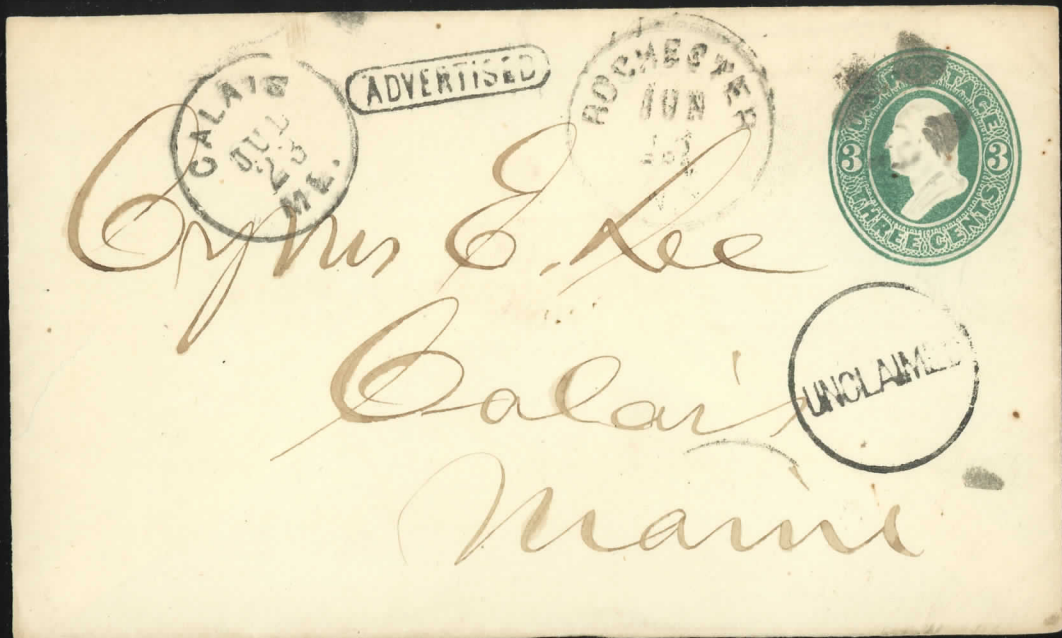 CALAIS
JUL
23
ME.
ADVERTISED
ROCHESTER
JUN
U.S. POSTAGE
3 3
THREE CENTS
Cyrus E. Lee
Calais
Maine
UNCLAIMED